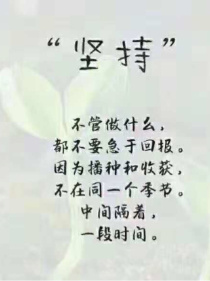 “坚持”
不管做什么，
都不要急于回报。
因为播种和收获，
不在同一个季节。
中间隔着，
一段时间。